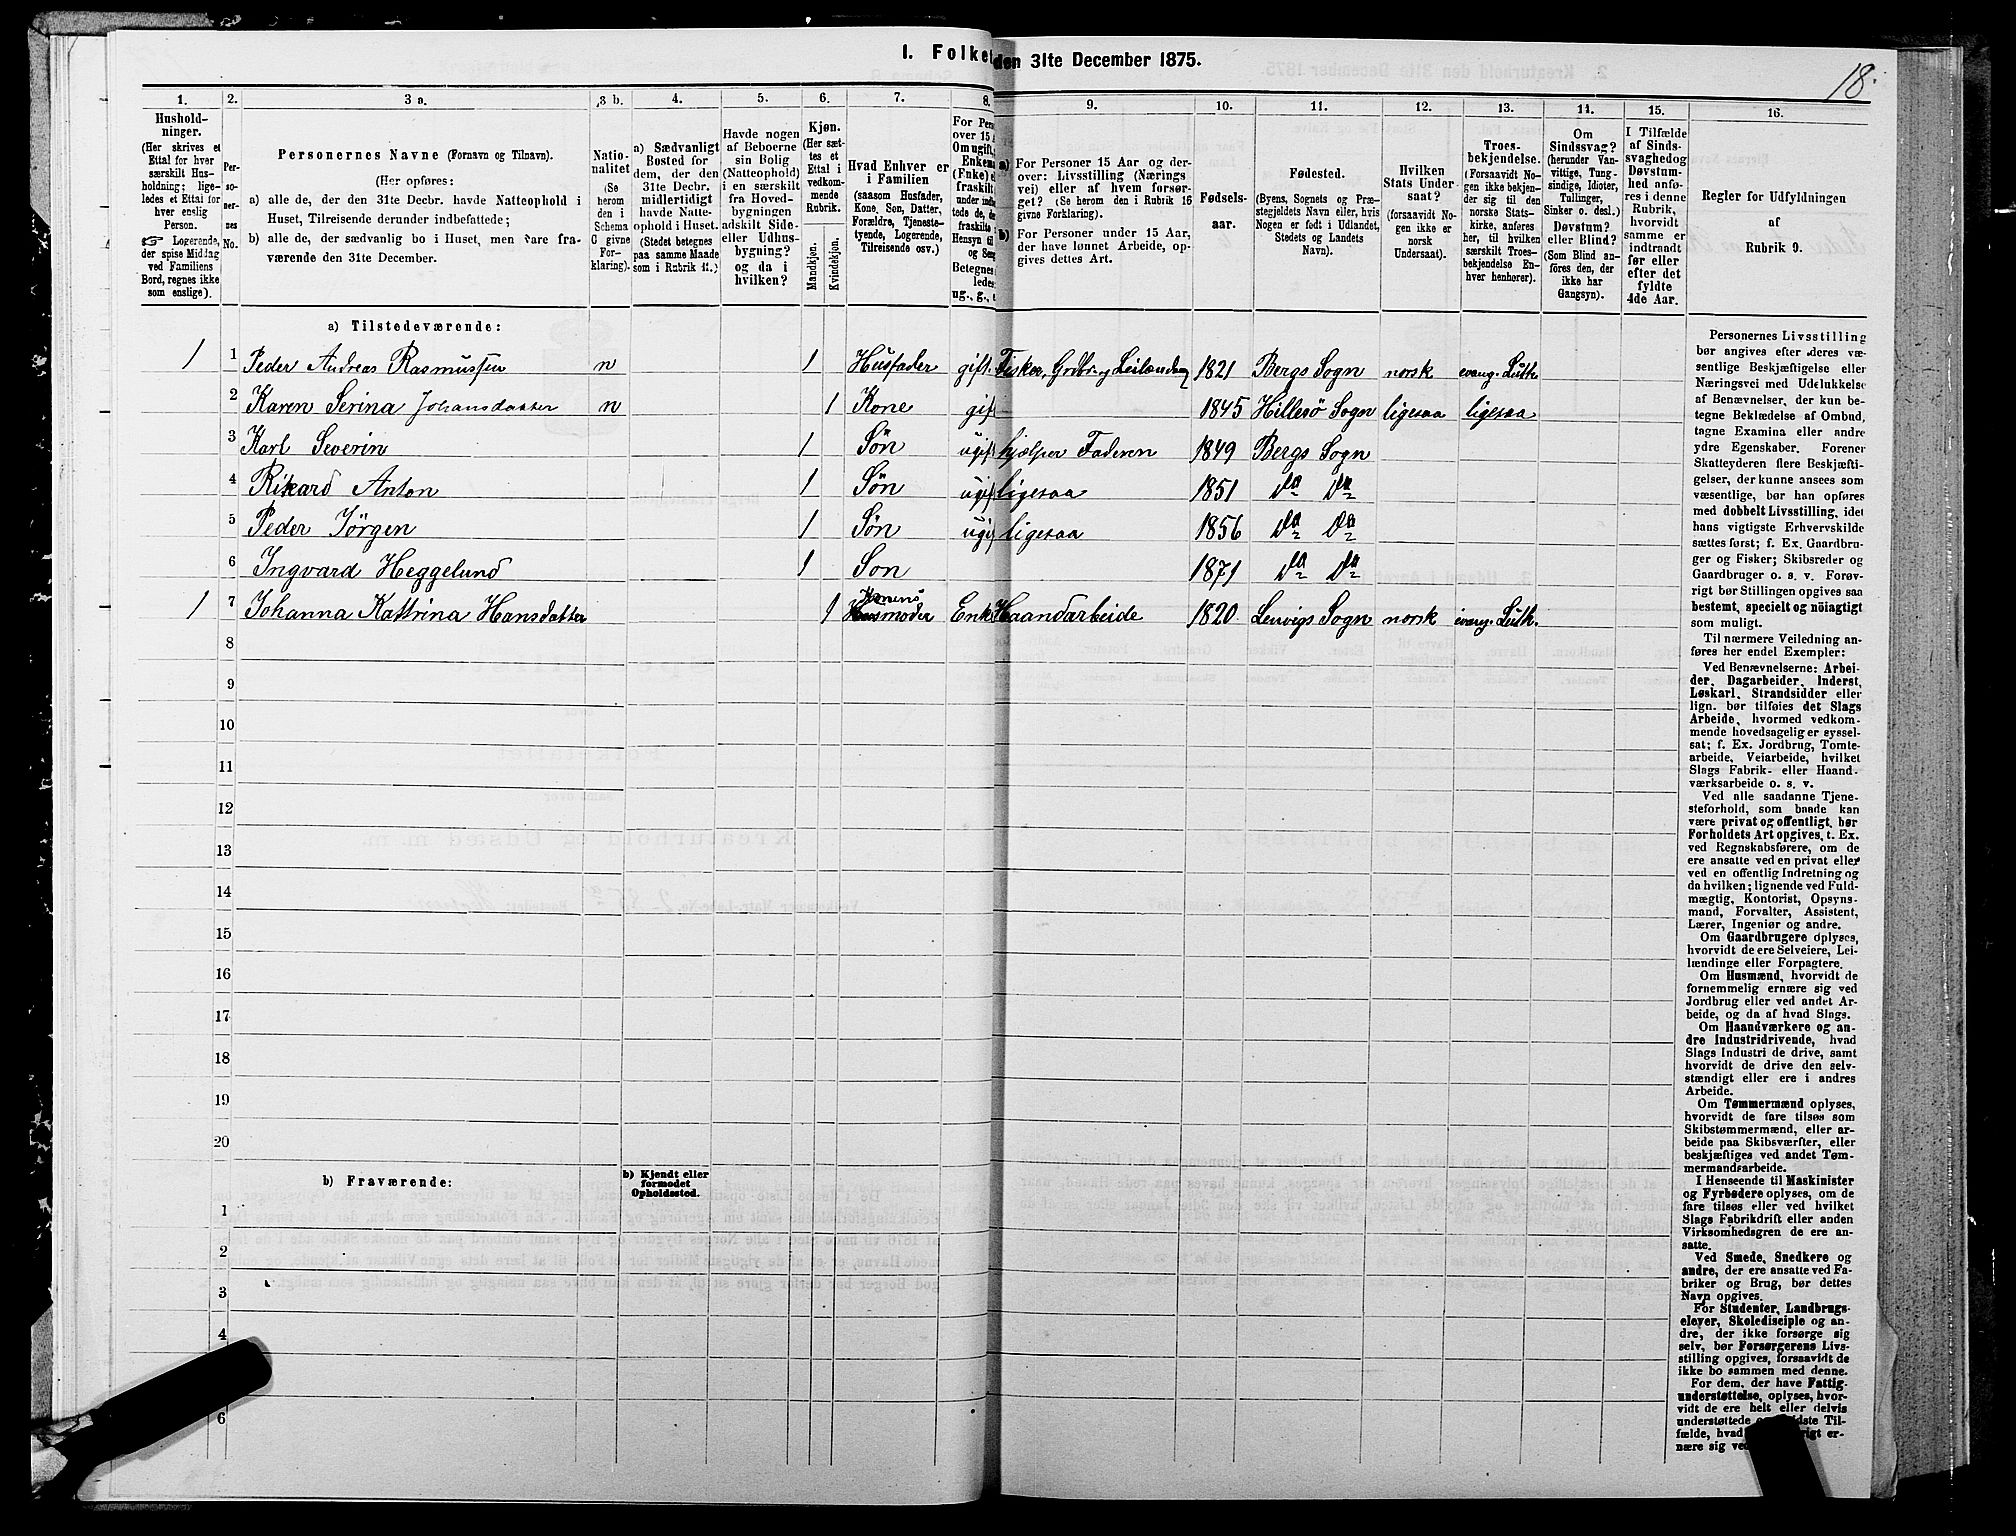 18.
I. Folket
den 31te December 1875.
1.
Hushold-
ninger.
(Her skrives et
Ettal for hver
særskilt Hus-
holdning; lige-
ledes et Ettal for
hver enslig
Person.
☞ Logerende,
der spise Middag
ved Familiens
Bord, regnes ikke
som enslige).
2.
Per-
so-
ner-
nes
No.
3 a.
Personernes Navne (Fornavn og Tilnavn).
(Her opføres:
a) alle de, der den 31te Decbr. havde Natteophold i
Huset, Tilreisende derunder indbefattede;
b) alle de, der sædvanlig bo i Huset, men vare fra-
værende den 31te December.
3 b.
Natio-
nalitet
(Se
herom
den i
Schema
C givne
For-
klaring).
4.
a) Sædvanligt
Bosted for
dem, der den
31te Decbr.
midlertidigt
havde Natte-
ophold i Huset.
(Stedet betegnes
paa samme Maade
som i Rubrik 11.)
5.
Havde nogen
af Beboerne
sin Bolig
(Natteophold)
i en særskilt
fra Hoved-
bygningen
adskilt Side-
eller Udhus-
bygning?
og da i
hvilken?
6.
Kjøn.
(Her sæt-
tes et
Ettal i
vedkom-
mende
Rubrik.
Mandkjøn.
Kvindekjøn.
7.
Hvad Enhver er
i Familien
(saasom Husfader,
Kone, Søn, Datter,
Forældre, Tjeneste-
tyende, Logerende,
Tilreisende osv.)
8.
For Pers
over 15 A
Om ugift,
Enkema
(Enke) e
fraskilt
under indb
tede de, d
fraskilte
Hensyn til
og Sen
Betegnes
ledes
ug., g.,
9.
a) For Personer 15 Aar og der-
over: Livsstilling (Nærings
vei) eller af hvem forsør-
get? (Se herom den i Rubrik 16
givne Forklaring).
b) For Personer under 15 Aar,
der have lønnet Arbeide, op-
gives dettes Art.
10.
Fødsels-
aar.
11.
Fødested.
(Byens, Sognets og Præ-
stegjeldets Navn eller, hvis
Nogen er født i Udlandet,
Stedets og Landets
Navn).
12.
Hvilken
Stats Under-
saat?
(forsaavidt No-
gen ikke er
norsk
Undersaat).
13.
Troes-
bekjendelse.
(Forsaavidt No-
gen ikke bekjen-
der sig til den
norske Stats-
kirke, anføres
her, til hvilken
særskilt Troes-
bekjendelse En-
hver henhører).
14.
Om
Sindssvag?
(herunder Van-
vittige, Tung-
sindige, Idioter,
Tullinger,
Sinker o. desl.)
Døvstum?
eller Blind?
(Som Blind an-
føres den, der
ikke har
Gangsyn).
15.
I Tilfælde
af Sinds-
svaghedog
Døvstum-
hed anfø-
res i denne
Rubrik,
hvorvidt
samme er
indtraadt
før eller
efter det
fyldte
4de Aar.
16.
Regler for Udfyldningen
af
Rubrik 9.
a) Tilstedeværende:
1 1 Peder Andreas Rasmussen n 1 Husfader gift. Fisker, Grdbr. og Leilænding 1821 Bergs Sogn norsk evang. Luth.
2 Karen Serina Johansdatter n 1 Kone gif 1845 Hillesö Sogn ligesaa ligesaa
3 Karl Severin 1 Søn ugif hjælper Faderen 1849 Bergs Sogn
4 Rikard Anton 1 Søn ugif ligesaa 1851 Do Do
5 Peder Jörgen 1 Søn ugi ligesaa 1856 Do Do
6 Ingvard Heggelund 1 Son 1871 Do Do
Konens
1 7 Johanna Kattrina Hansdatter 1 Husmoder Enk Haandarbeide 1820 Lenvigs Sogn norsk evang. Luth.
8
9
10
11
12
13
14
15
16
17
18
19
20
b) Fraværende:
b) Kjendt eller
formodet
Opholdssted.
1
2
3
4
6
Personernes Livsstilling
bør angives efter deres væ-
sentlige Beskjæftigelse eller
Næringsvei med Udelukkelse
af Benævnelser, der kun be-
tegne Beklædelse af Ombud,
tagne Examina eller andre
ydre Egenskaber. Forener
Skatteyderen flere Beskjæfti-
gelser, der kunne ansees som
væsentlige, bør han opføres
med dobbelt Livsstilling, idet
hans vigtigste Erhvervskilde
sættes først; f. Ex. Gaardbru-
ger og Fisker; Skibsreder og
Gaardbruger o. s. v. Forøv-
rigt bør Stillingen opgives saa
bestemt, specielt og nöiagtigt
som muligt.
Til nærmere Veiledning an-
føres her endel Exempler:
Ved Benævnelserne: Arbei-
der, Dagarbeider, Inderst,
Løskarl, Strandsidder eller
lign. bør tilføies det Slags
Arbeide, hvormed vedkom-
mende hovedsagelig er syssel-
sat; f. Ex. Jordbrug, Tomte-
arbeide, Veiarbeide, hvilket
Slags Fabrik- eller Haand-
værksarbeide o. s. v.
Ved alle saadanne Tjene-
steforhold, som baade kan
være privat og offentligt, bør
Forholdets Art opgives, t. Ex.
ved Regnskabsførere, om de
ere ansatte ved en privat eller
ved en offentlig Indretning og
da hvilken; lignende ved Fuld-
mægtig, Kontorist, Opsyns-
mand, Forvalter, Assistent,
Lærer, Ingeniør og andre.
Om Gaardbrugere oplyses,
hvorvidt de ere Selveiere, Lei-
lændinge eller Forpagtere.
Om Husmænd, hvorvidt de
fornemmelig ernære sig ved
Jordbrug eller ved andet Ar-
beide, og da af hvad Slags.
Om Haandværkere og an-
dre Industridrivende, hvad
Slags Industri de drive, samt
hvorvidt de drive den selv-
stændigt eller ere i andres
Arbeide.
Om Tømmermænd oplyses,
hvorvidt de fare tilsøs som
Skibstømmermænd, eller ar-
beide paa Skibsværfter, eller
beskjæftiges ved andet Tøm-
mermandsarbeide.
I Henseende til Maskinister
og Fyrbødere oplyses, om de
fare tilsøs eller ved hvilket
Slags Fabrikdrift eller anden
Virksomhedsgren de ere an-
satte.
Ved Smede, Snedkere og
andre, der ere ansatte ved Fa-
briker og Brug, bør dettes
Navn opgives.
For Studenter, Landbrugs-
elever, Skoledisciple og an-
dre, der ikke forsørge sig
selv, bør Forsørgerens Livs-
stilling opgives, forsaavidt de
ikke bo sammen med denne.
For dem, der have Fattig-
understøttelse, oplyses, hvor-
vidt de ere helt eller delvis
understøttede o sidste Til-
fælde, hvad rigt er-
nære sig ved